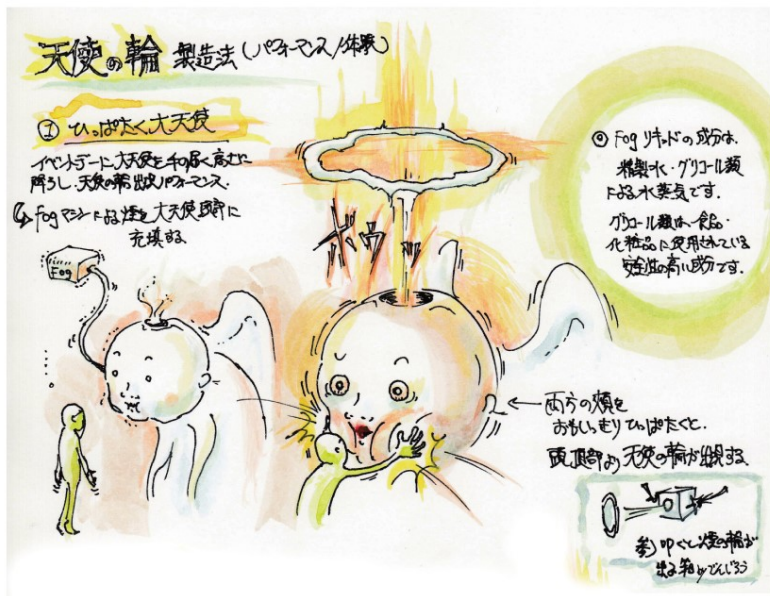 天使の輪 製造法(パフォーマンス/体験)
① ひっぱたく大天使
イベントデーに大天使を手の届く高さに
降ろし、天使の輪出現パフォーマンス。
Fogマシンによる煙を大天使頭部に
充填する
Fog
ボウッ
◎ Fogリキッドの成分は、
精製水・グリコール類
による水蒸気です。
グリコール類は、食品・
化粧品に使用されている
安全性の高い成分です。
両方の頬を
おもいっきりひっぱたくと、
頭頂部より天使の輪が出現する。
参) 叩くと煙の輪が
出る箱 byでんじろう